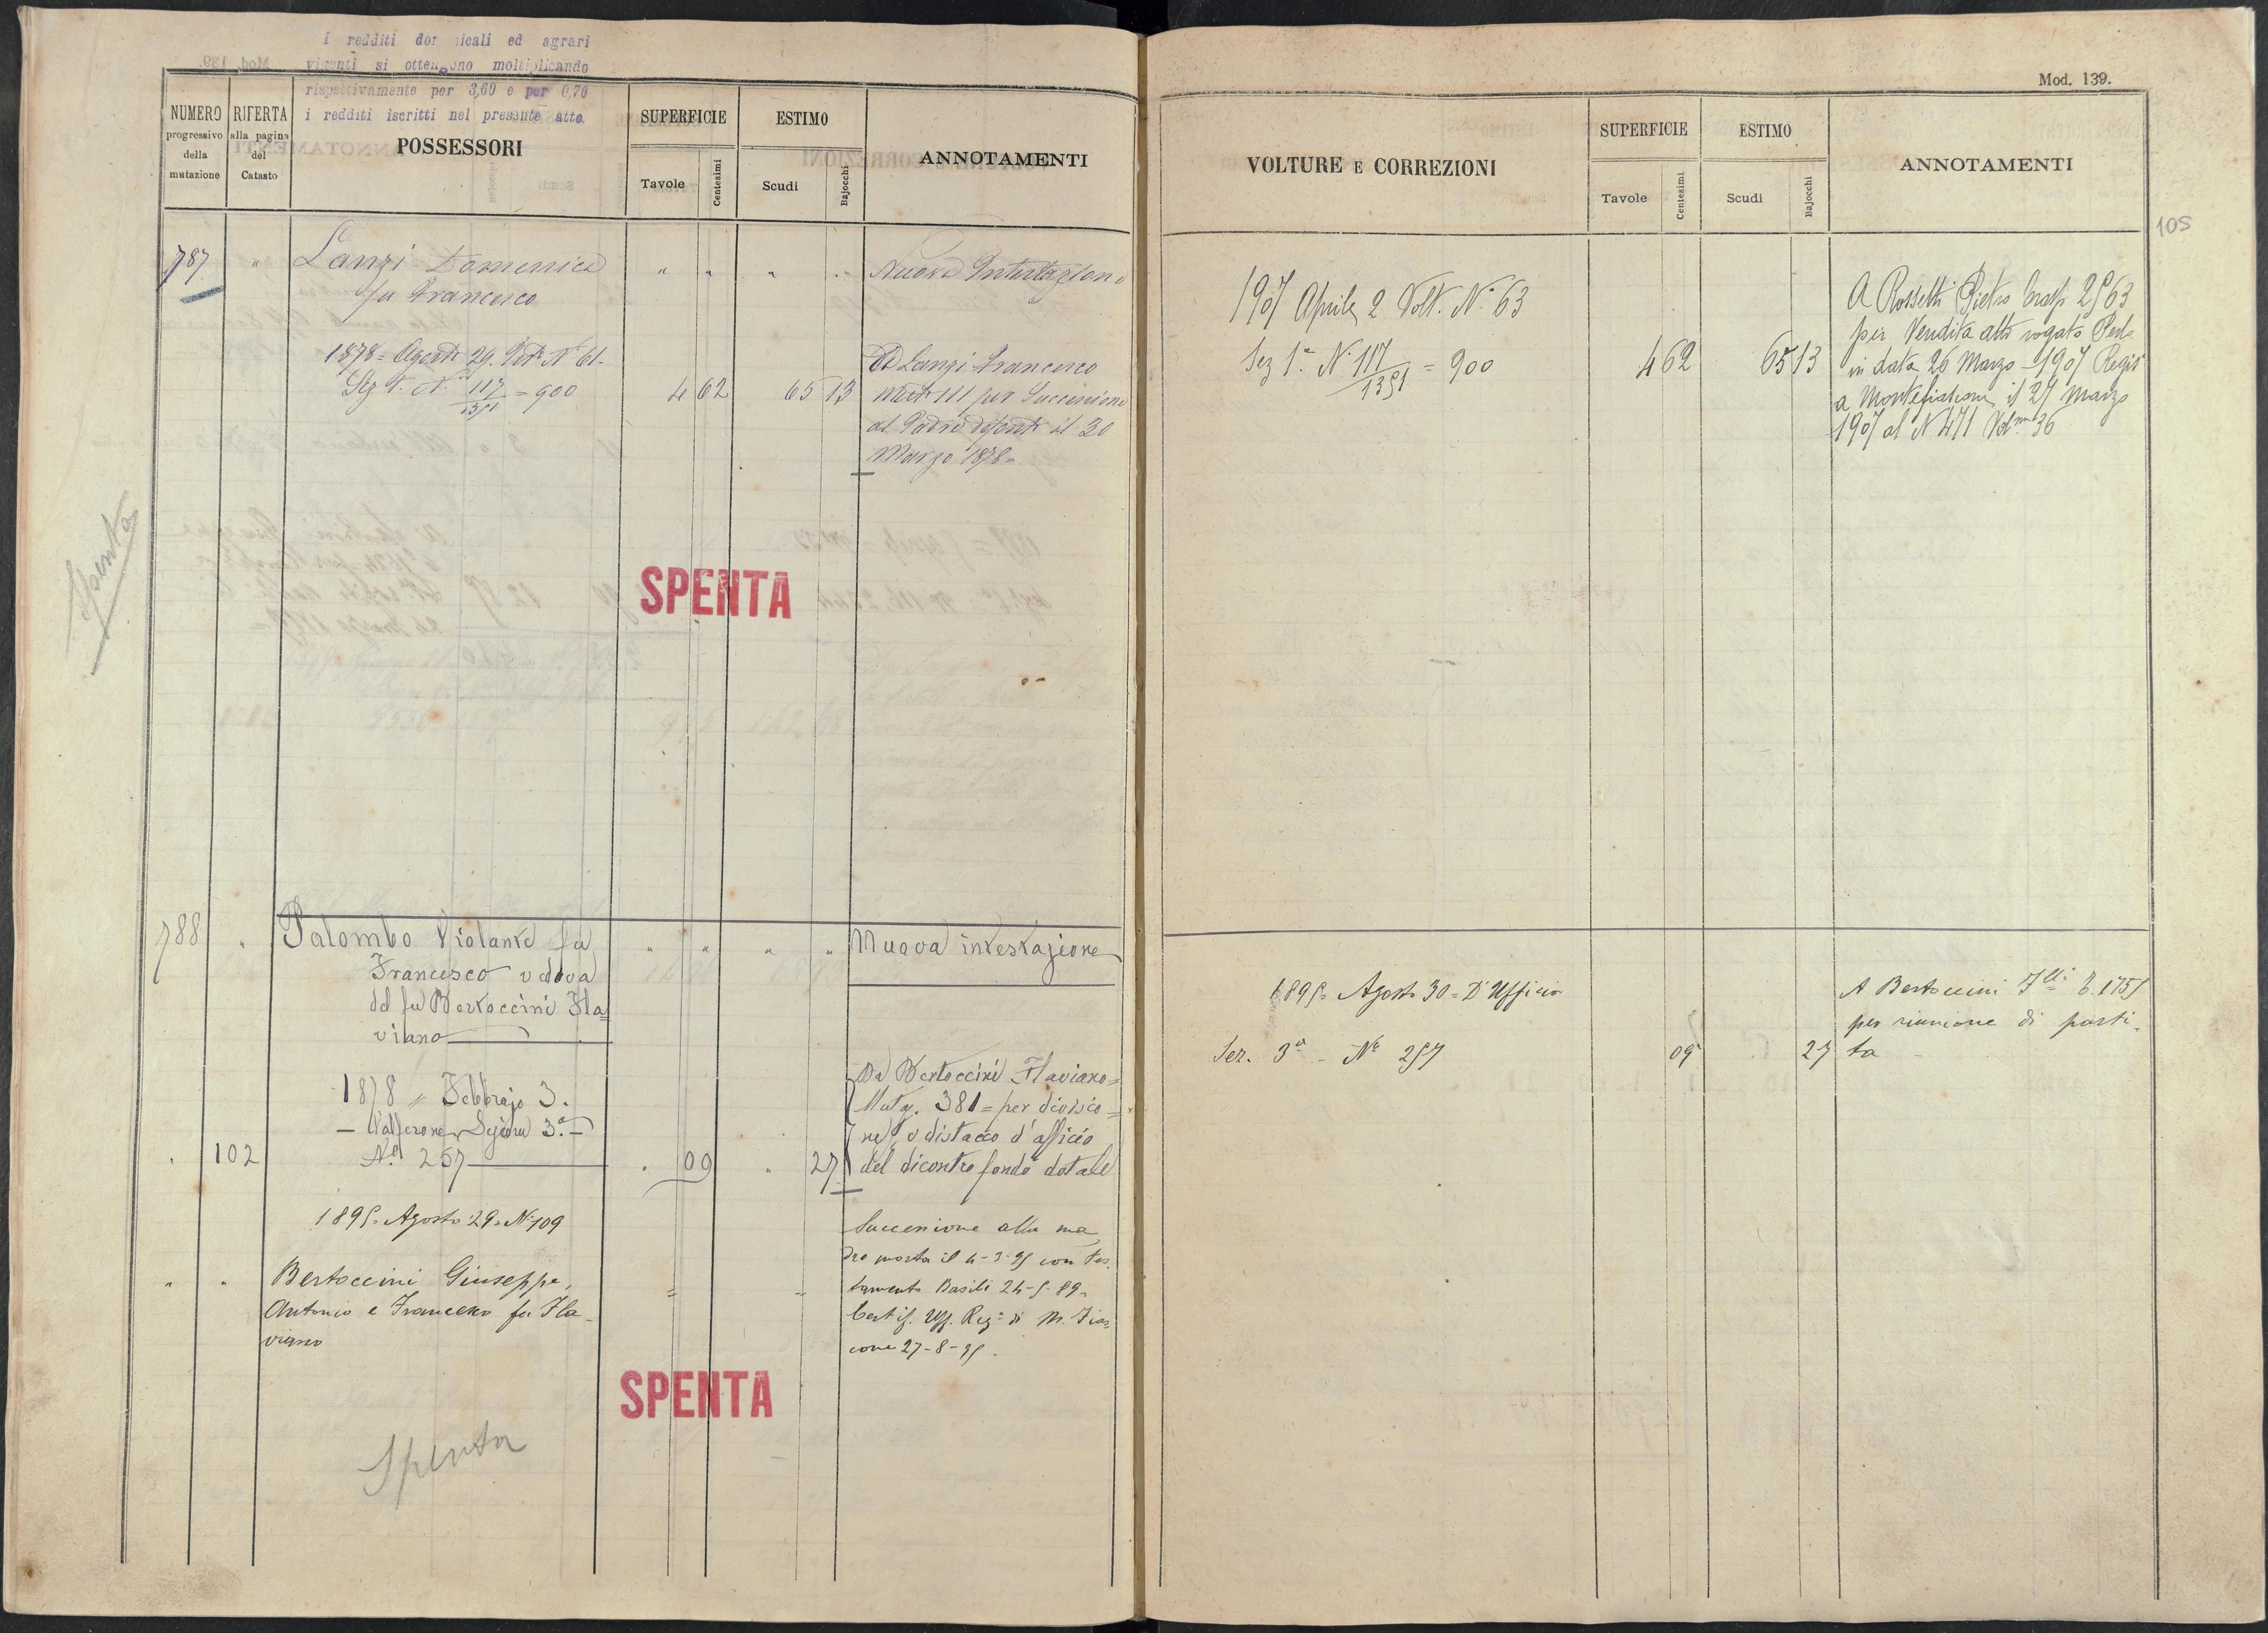 I redditi dominicali ed agrari
vigenti si ottengono moltiplicando
rispettivamente per 3,60 e per 0,70
i redditi iscritti nel presente atto.
NUMERO
progressivo
della
mutazione
RIFERTA
alla pagina
del
Catasto
POSSESSORI
SUPERFICIE
Tavole
Centesimi
ESTIMO
Scudi
Bajocchi
ANNOTAMENTI
787 " Lanzi Domenico " " " " Nuova Intestazione
fu Francesco
1878 = Agosto 29. N. 61.
Sez. 1. N. 117/1351 = 900 4 62 65 13
Da Lanzi Francesco
111 per Successione
al Padre defunto il 30
Marzo 1878 =
Spenta
SPENTA
788 " Palombo Violante fu " " " " Nuova intestazione
Francesco vedova
del fu Bertoccini Fla=
viano
1878 " Febbrajo 3.
3.a
" 102 N.o 257 " 09 " 27
Da Bertoccini Flaviano =
Mutaz. 381 = per divisio=
ne, o distacco d'afficio
del dicontro fondo dotale
1895. Agosto 29. N. 109
" " Bertoccini Giuseppe,
Antonio e Francesco fu Fla-
viano
Successione alla ma
dre morta il 4-3-95 con tes.
tamento Basili 24-5-89.
Certif. Uff. Reg. di M. Fias
cone 27-8-95.
SPENTA
Spenta
Mod. 139.
105
VOLTURE E CORREZIONI
SUPERFICIE
Tavole
Centesimi
ESTIMO
Scudi
Bajocchi
ANNOTAMENTI
1907 Aprile 2 Volt. N. 63
Sez 1.a N. 117/1351 = 900 4 62 65 13
A Rossetti Pietro 2563
per Vendita atto rogato
in data 26 Marzo 1907 Regis
a Montefiascone il 27 Marzo
1907 al N 471 Vol. 36
1895. Agosto 30 = D'Ufficio
Sez. 3a - No 257 09 27
A Bertoccini F.lli 1755
per riunione di parti-
ta